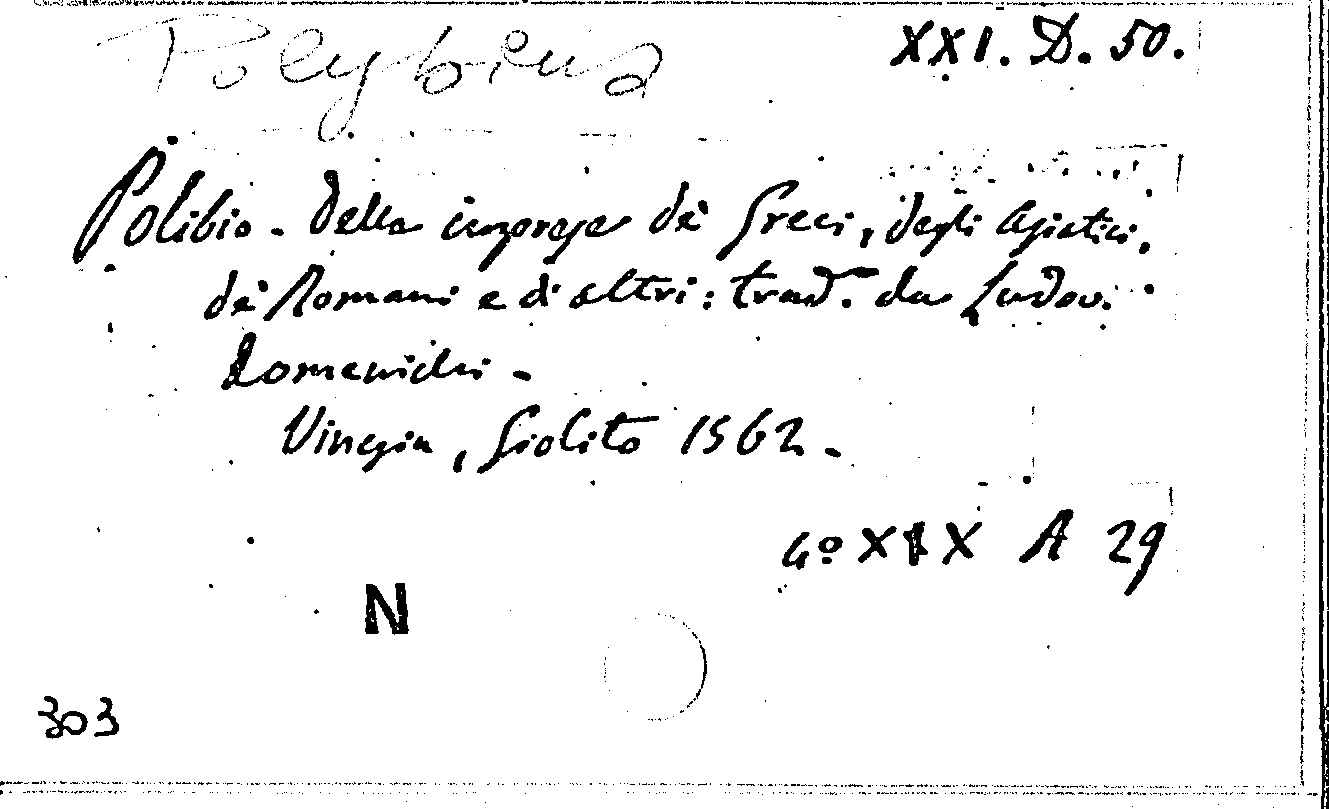 Polybius
XXI. D. 50.
Polibio - Delle imprese de' Greci, degli Asiatici,
de' Romani e di altri: trad. da Ludov.
Domenichi -
Vinegia, Giolito 1562 -
4º XIX A 29
N
303